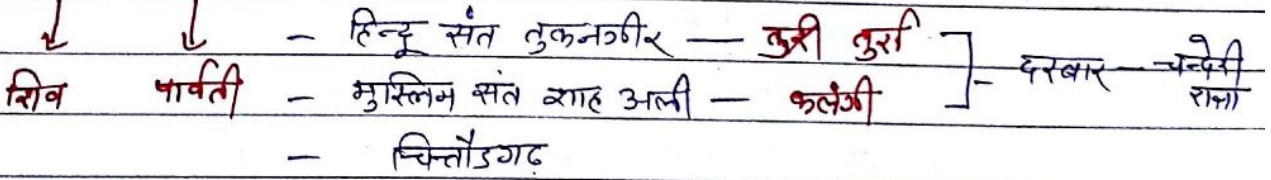 ↓ ↓ - हिन्दू संत तुकनगीर — तुर्रा ] - दरबार — चन्देरी
शिव पार्वती - मुस्लिम संत शाह अली — कलंगी राजा
- चित्तौडगढ